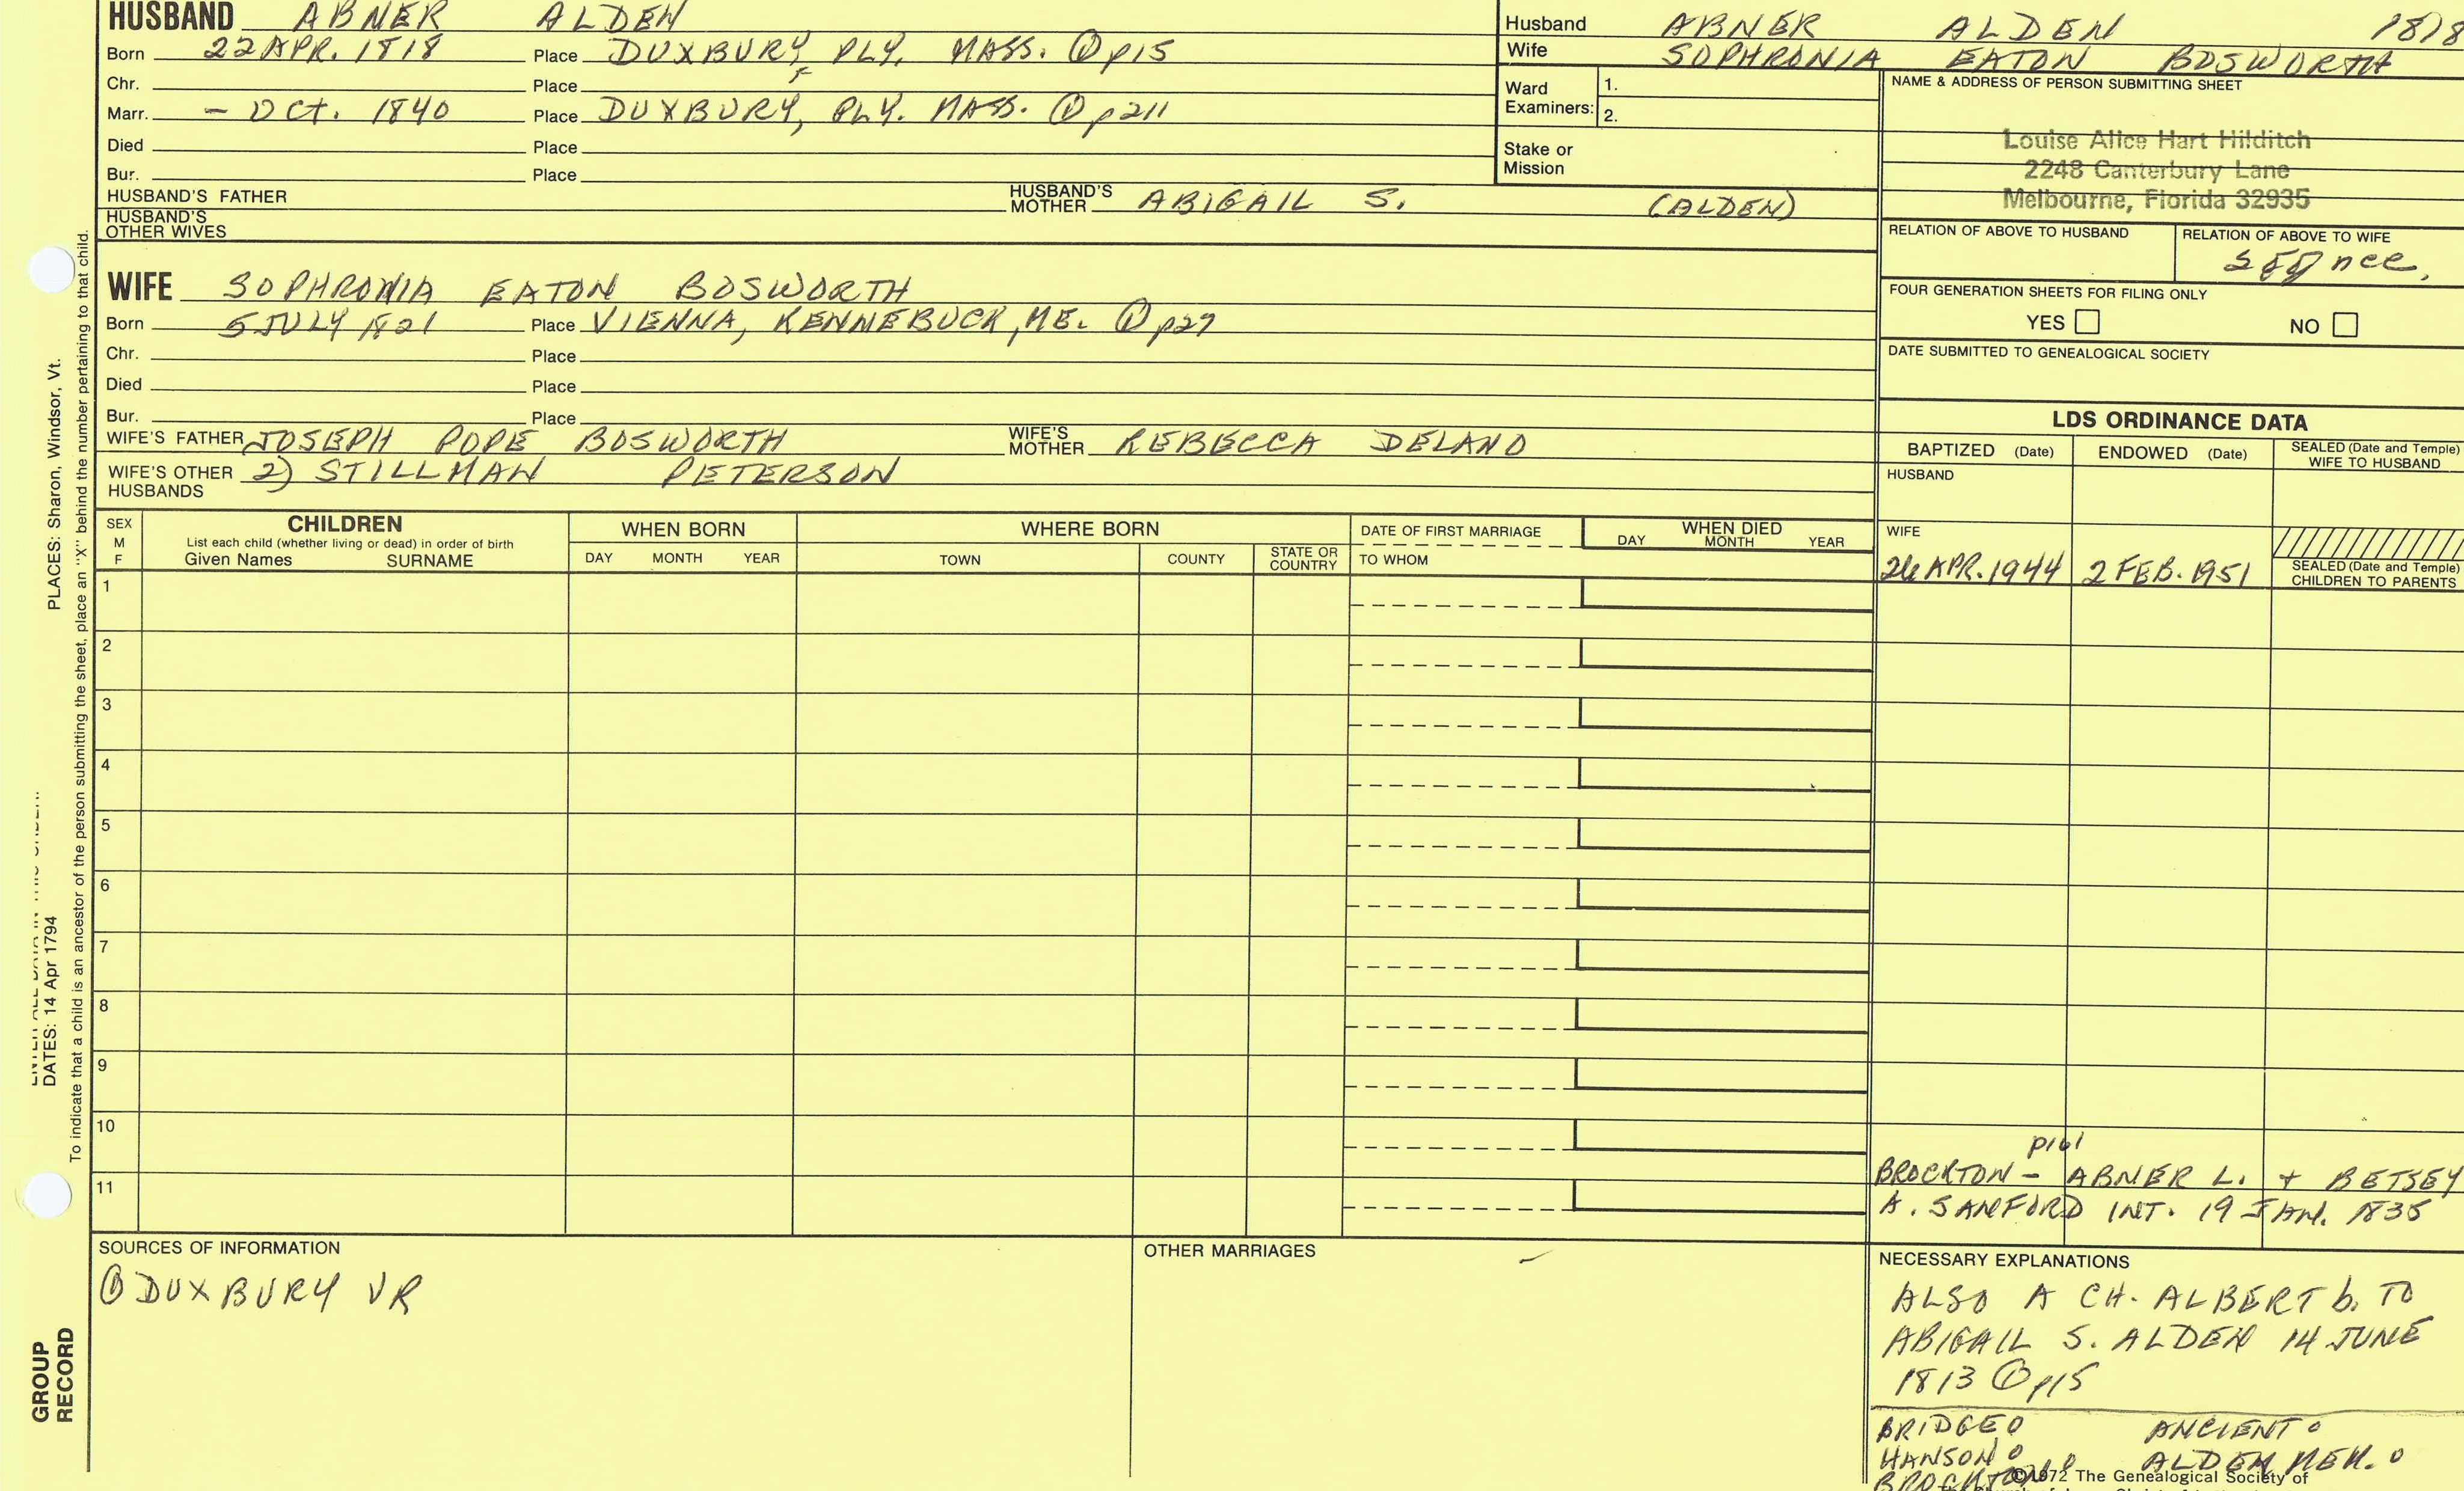 HUSBAND ABNER ALDEN
Born 22 APR. 1818 Place DUXBURY, PLY. MASS. ① p15
Chr. Place
Marr. - OCT. 1840 Place DUXBURY, PLY. MASS. ① p211
Died Place
Bur. Place
HUSBAND'S FATHER HUSBAND'S MOTHER ABIGAIL S. (ALDEN)
HUSBAND'S OTHER WIVES
Husband ABNER ALDEN 1818
Wife SOPHRONIA EATON BOSWORTH
Ward Examiners: 1.
2.
Stake or Mission
NAME & ADDRESS OF PERSON SUBMITTING SHEET
Louise Alice Hart Hilditch
2248 Canterbury Lane
Melbourne, Florida 32935
RELATION OF ABOVE TO HUSBAND RELATION OF ABOVE TO WIFE
FOUR GENERATION SHEETS FOR FILING ONLY
YES NO
DATE SUBMITTED TO GENEALOGICAL SOCIETY
WIFE SOPHRONIA EATON BOSWORTH
Born 5 JULY 1821 Place VIENNA, KENNEBUCK, ME. ① p27
Chr. Place
Died Place
Bur. Place
WIFE'S FATHER JOSEPH POPE BOSWORTH WIFE'S MOTHER REBECCA DELANO
WIFE'S OTHER HUSBANDS 2) STILLMAN PETERSON
LDS ORDINANCE DATA
BAPTIZED (Date) ENDOWED (Date) SEALED (Date and Temple) WIFE TO HUSBAND
HUSBAND
WIFE
26 APR. 1944 2 FEB. 1951
SEALED (Date and Temple) CHILDREN TO PARENTS
SEX M F
CHILDREN
List each child (whether living or dead) in order of birth
Given Names SURNAME
WHEN BORN
DAY MONTH YEAR
WHERE BORN
TOWN COUNTY STATE OR COUNTRY
DATE OF FIRST MARRIAGE
TO WHOM
WHEN DIED
DAY MONTH YEAR
1
2
3
4
5
6
7
8
9
10
11
p161
BROCKTON - ABNER L. + BETSEY
A. SANFORD INT. 19 JAN. 1835
SOURCES OF INFORMATION
① DUXBURY VR
OTHER MARRIAGES
NECESSARY EXPLANATIONS
ALSO A CH. ALBERT b. TO
ABIGAIL S. ALDEN 14 JUNE
1813 ① p15
BRIDGE 0 ANCIENT 0
HANSON 0 ALDEN MEM. 0
BROCKTON
©1972 The Genealogical Society of
PLACES: Sharon, Windsor, Vt.
DATES: 14 Apr 1794
To indicate that a child is an ancestor of the person submitting the sheet, place an "X" behind the number pertaining to that child.
GROUP
RECORD